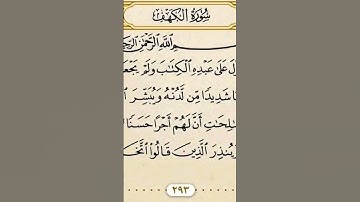 سُورَةُ الكَهْفِ
ـسْمِ ٱللَّهِ ٱلرَّحْمَٰنِ ٱلرَّحِـ
لَ عَلَىٰ عَبْدِهِ ٱلْكِتَٰبَ وَلَمْ يَجْعَـ
ـا شَدِيدًا مِّن لَّدُنْهُ وَيُبَشِّرَ ٱ
ـلِحَٰتِ أَنَّ لَهُمْ أَجْرًا حَسَنًا
يُنذِرَ ٱلَّذِينَ قَالُوا۟ ٱتَّخَـ
٢٩٣